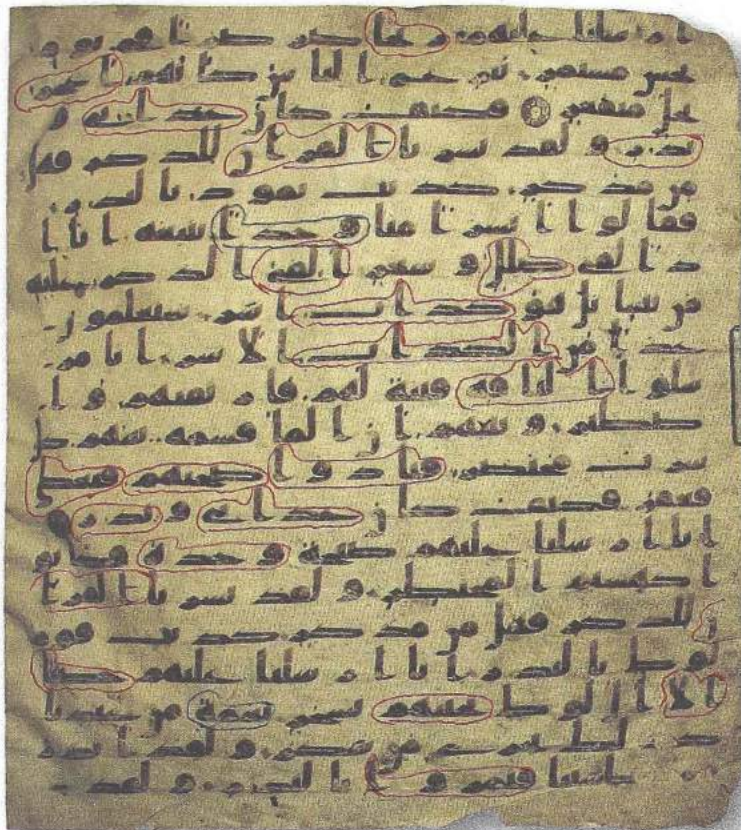 ارسلنا عليهم ريحا صرصرا في يوم
نحس مستمر تنزع الناس كانهم اعجز
نخل منقعر فكيف كان عذابي و
نذر ولقد يسرنا القران للذكر فهل
من مدكر كذبت ثمود بالنذر
فقالوا ابشرا منا وحدا نتبعه انا ا
ذا لفي ضلل وسعر القي الذكر عليه
من بيننا بل هو كذاب اشر سيعلمون
غدا من الكذاب الاشر انا مر
سلوا الناقه فتنة لهم فارتقبهم وا
صطبر ونبئهم ان الما قسمه بينهم كل
شرب محتضر فنادوا صحبهم فتعطى
فعقر فكيف كان عذابي ونذر
انا ارسلنا عليهم صيحة وحدة فكانو
ا كهشيم المحتظر ولقد يسرنا القرا
ن للذكر فهل من مدكر كذبت قوم
لوط بالنذر انا ارسلنا عليهم حصبا
الا ال لوط نجينهم بسحر نعمة من عندنا
كذلك نجزي من شكر ولقد انذر
بطشتنا فتمروا بالنذر ولقد